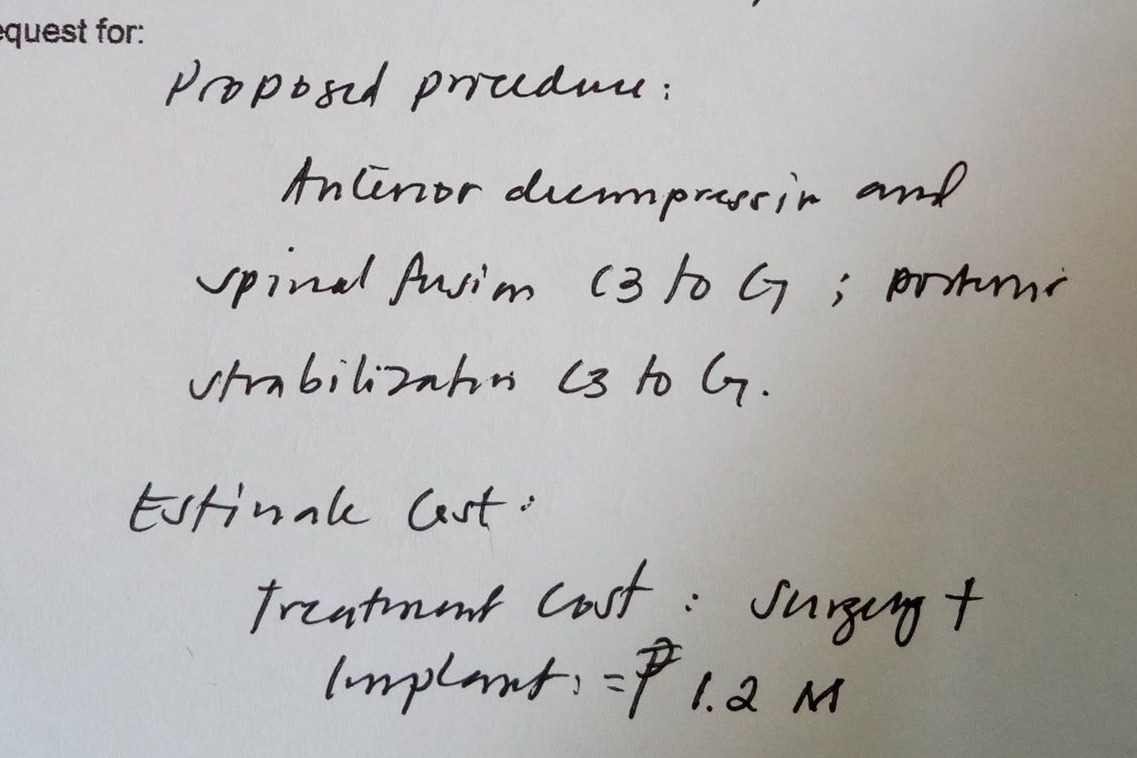 equest for:
Proposed procedure:
Anterior decompression and
spinal fusion C3 to C7 ; posterior
stabilization C3 to C7.
Estimate Cost:
Treatment Cost : Surgery +
Implant, = ₱ 1.2 M